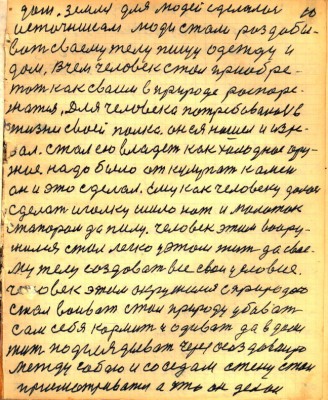 60
дом, земли для людей сделалос
источникам люди стали раздобы-
вать своему телу пищу одежду и
дом, в чем человек стал приобре-
тат как своим в природе распоре-
жатся, для человека потребовалос в
жизни своей палка он ея нашел и взя-
зал. стал ею владет как холодное ору-
жие надо было откапыват камен
он и это сделал. Ему как человеку давай
сделат иголку шило нож и молоток
с топором да пилу. человек этим воору-
жился стал легко у этом жит да свое-
му телу создоват все свои условия.
человек этим окружился с природою
стал воеват стал природу убиват
сам себя кормит и одиват да в доми
жит подглядыват через создованую
между собою и соседам стену стал
присматриватся а что он делаи